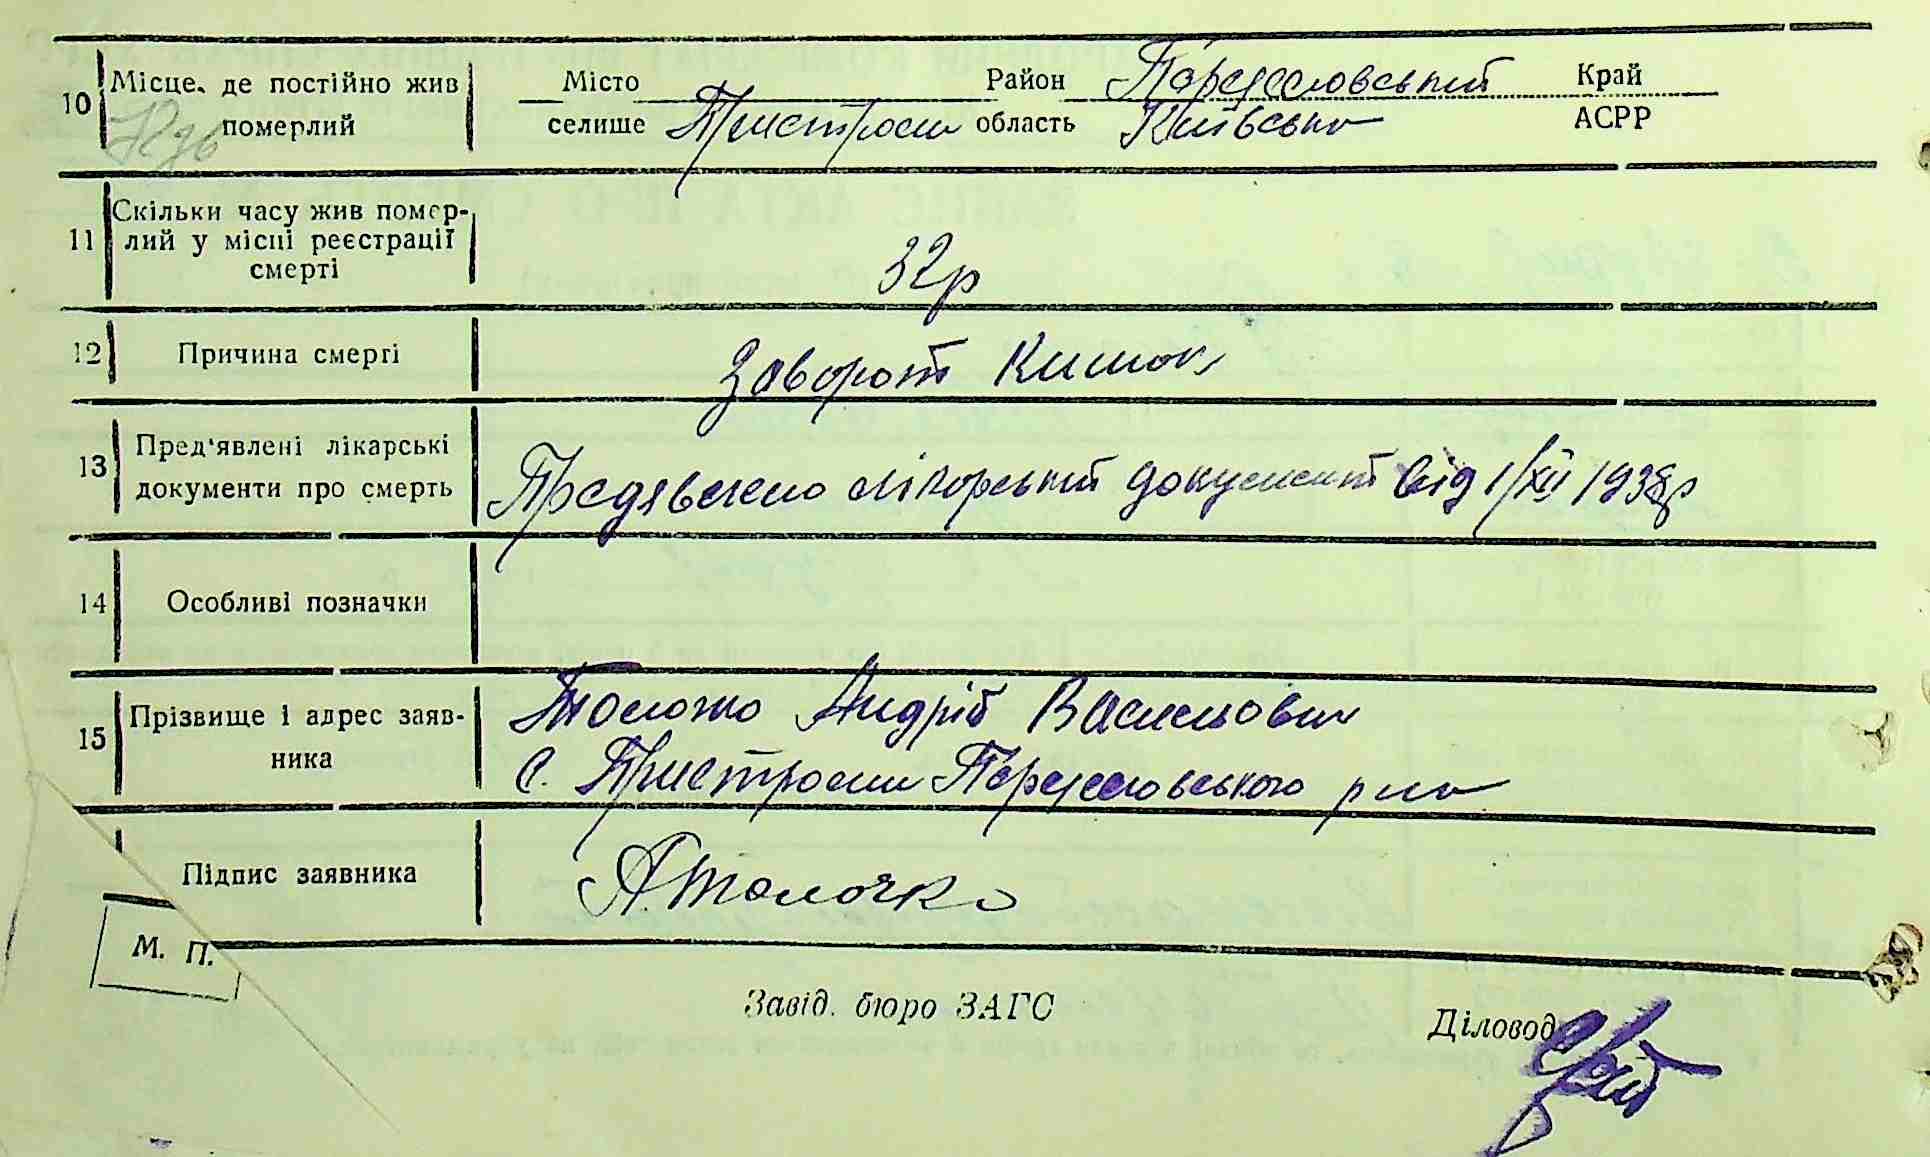 10 Місце, де постійно жив померлий
Місто Район Переяславський Край
селище Пристроми область Київська АСРР
11 Скільки часу жив помер-
лий у місці реєстрації
смерті
32р
12 Причина смерті Заворот Кишок
13 Пред'явлені лікарські
документи про смерть
Предявлено лікарський документ від 1/XII 1938р
14 Особливі позначки
15 Прізвище і адрес заяв-
ника
Толочко Андрій Васильович
с. Пристроми Переяславського р-на
Підпис заявника А.Толочко
М. П.
Завід. бюро ЗАГС
Діловод